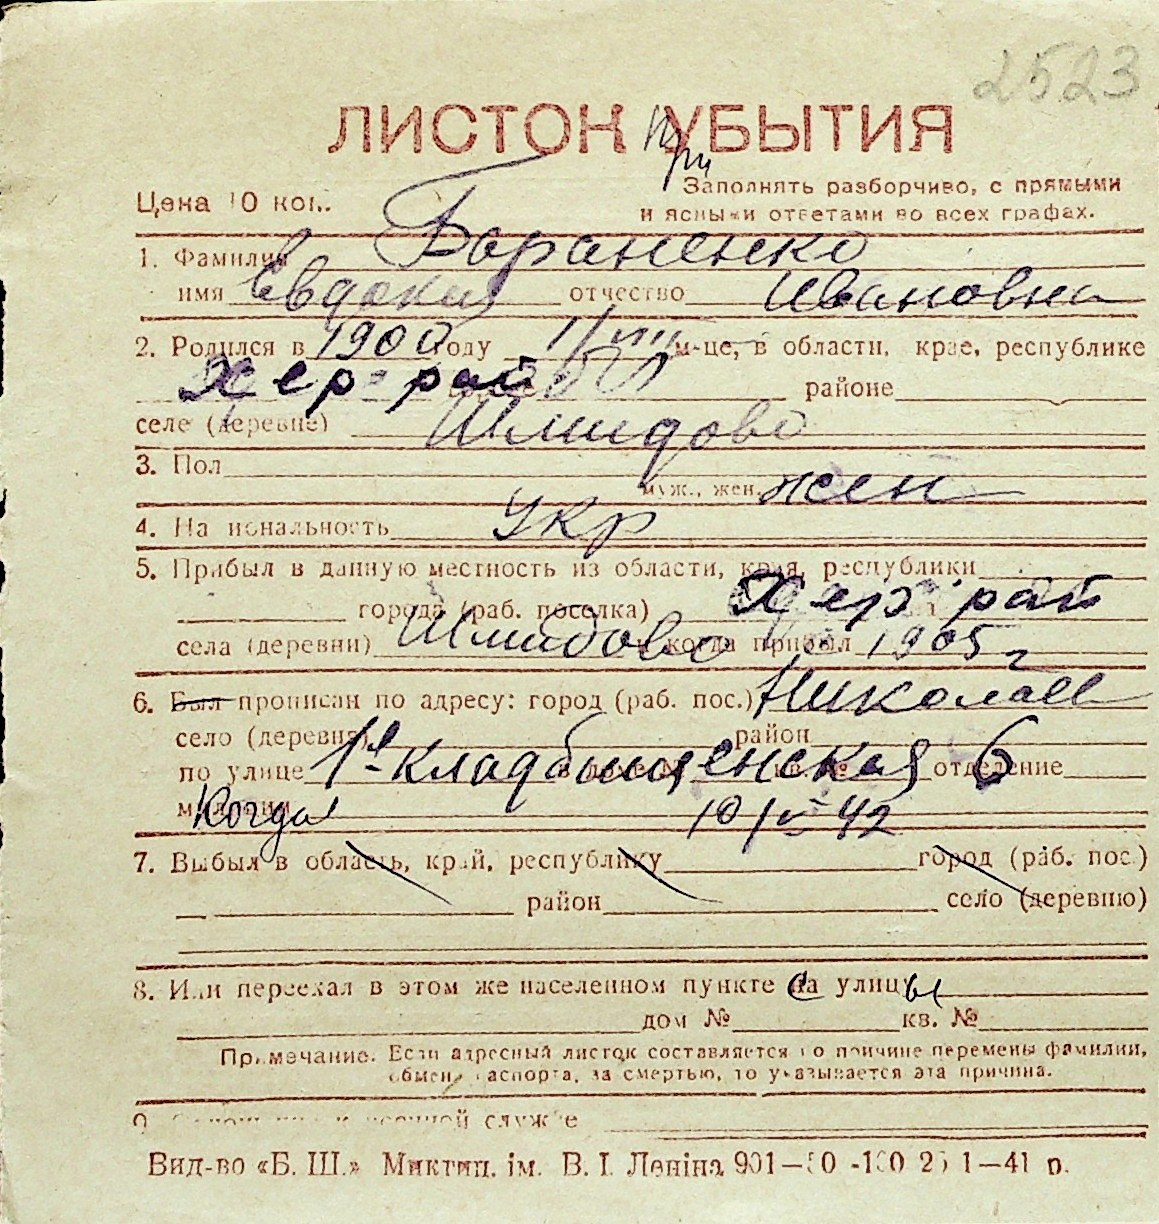 2523
ЛИСТОК УБЫТИЯ
При
Цена 10 коп.
Заполнять разборчиво, с прямыми
и ясными ответами во всех графах.
1. Фамилия Бараненко
имя Евдокия отчество Ивановна
2. Родился в 1900 году 1/VIII м-це, в области, крае, республике
Хер-рай районе
селе (деревне) Шмидово
3. Пол
муж., жен. жен
4. Национальность Укр
5. Прибыл в данную местность из области, края, республики
города (раб. поселка) Хер рай
села (деревни) Шмидово когда прибыл 1905 г
6. Был прописан по адресу: город (раб. пос.) Николаев
село (деревня) район
по улице 1я Кладбищенская 6 отделение
милиции Когда 10/V 42
7. Выбыл в область, край, республику город (раб. пос.)
район село (деревню)
8. Или переехал в этом же населенном пункте с улицы
дом № кв. №
Примечание. Если адресный листок составляется по причине перемены фамилии,
обмена паспорта, за смертью, то указывается эта причина.
9. военной службе
Вид-во «Б. Ш.» Миктип. ім. В. І. Леніна 1—41 р.